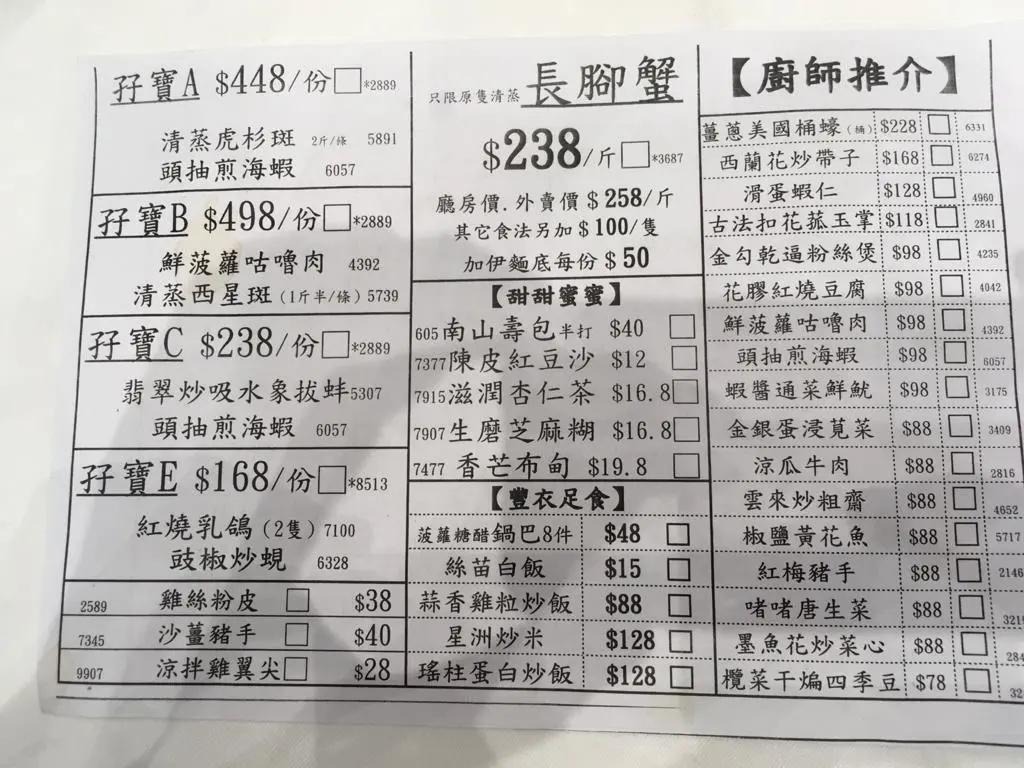 孖寶A $448/份 *2889
清蒸虎杉斑 2斤/條 5891
頭抽煎海蝦 6057
孖寶B $498/份 *2889
鮮菠蘿咕嚕肉 4392
清蒸西星斑 (1斤半/條) 5739
孖寶C $238/份 *2889
翡翠炒吸水象拔蚌 5307
頭抽煎海蝦 6057
孖寶E $168/份 *8513
紅燒乳鴿 (2隻) 7100
豉椒炒蜆 6328
2589 雞絲粉皮 $38
7345 沙薑豬手 $40
9907 涼拌雞翼尖 $28
只限原隻清蒸 長腳蟹
$238/斤 *3687
廳房價.外賣價 $258/斤
其它食法另加 $100/隻
加伊麵底每份 $50
【甜甜蜜蜜】
605 南山壽包半打 $40
7377 陳皮紅豆沙 $12
7915 滋潤杏仁茶 $16.8
7907 生磨芝麻糊 $16.8
7477 香芒布甸 $19.8
【豐衣足食】
菠蘿糖醋鍋巴8件 $48
絲苗白飯 $15
蒜香雞粒炒飯 $88
星洲炒米 $128
瑤柱蛋白炒飯 $128
【廚師推介】
薑蔥美國桶蠔(桶) $228 6331
西蘭花炒帶子 $168 6274
滑蛋蝦仁 $128 4960
古法扣花菰玉掌 $118 2841
金勾乾逼粉絲煲 $98 4235
花膠紅燒豆腐 $98 4042
鮮菠蘿咕嚕肉 $98 4392
頭抽煎海蝦 $98 6057
蝦醬通菜鮮魷 $98 3175
金銀蛋浸莧菜 $88 3409
涼瓜牛肉 $88 2816
雲來炒粗齋 $88 4652
椒鹽黃花魚 $88 5717
紅梅豬手 $88 2146
啫啫唐生菜 $88
墨魚花炒菜心 $88
欖菜干煸四季豆 $78